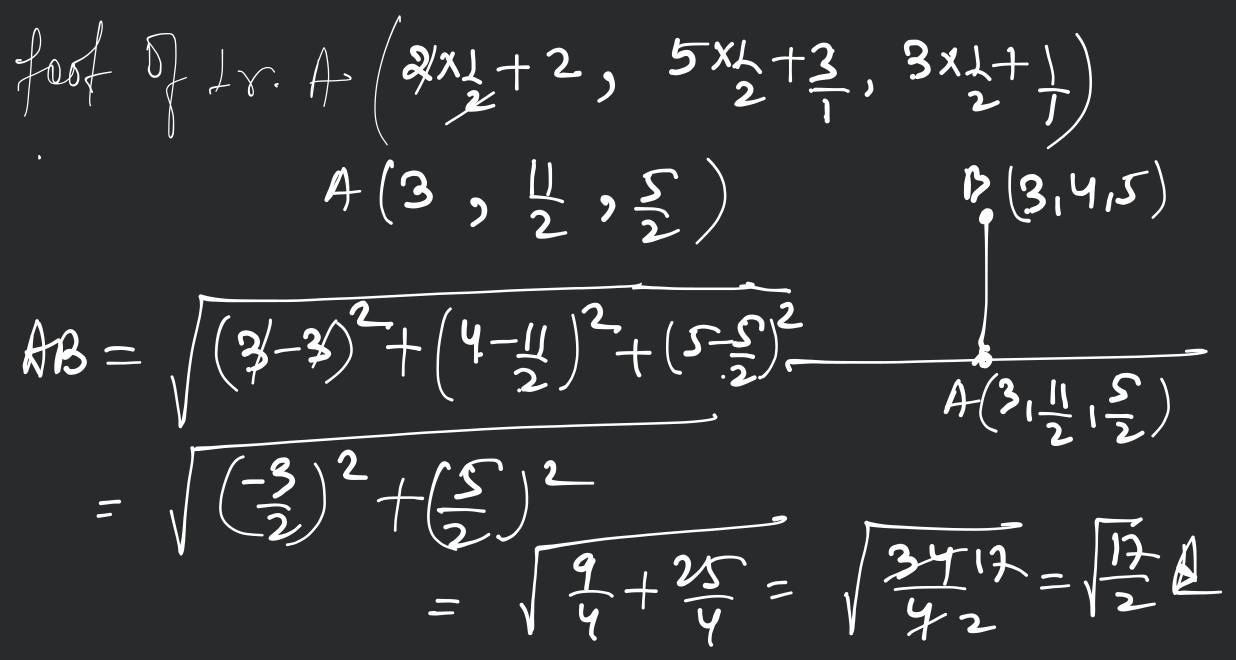 foot of ⊥r. A (2×1/2 + 2, 5×1/2 + 3/1, 3×1/2 + 1/1)
A (3, 11/2, 5/2)
B (3,4,5)
AB = √((3-3)² + (4 - 11/2)² + (5 - 5/2)²)
A(3, 11/2, 5/2)
= √((-3/2)² + (5/2)²)
= √(9/4 + 25/4) = √(34 17/4 2) = √(17/2)